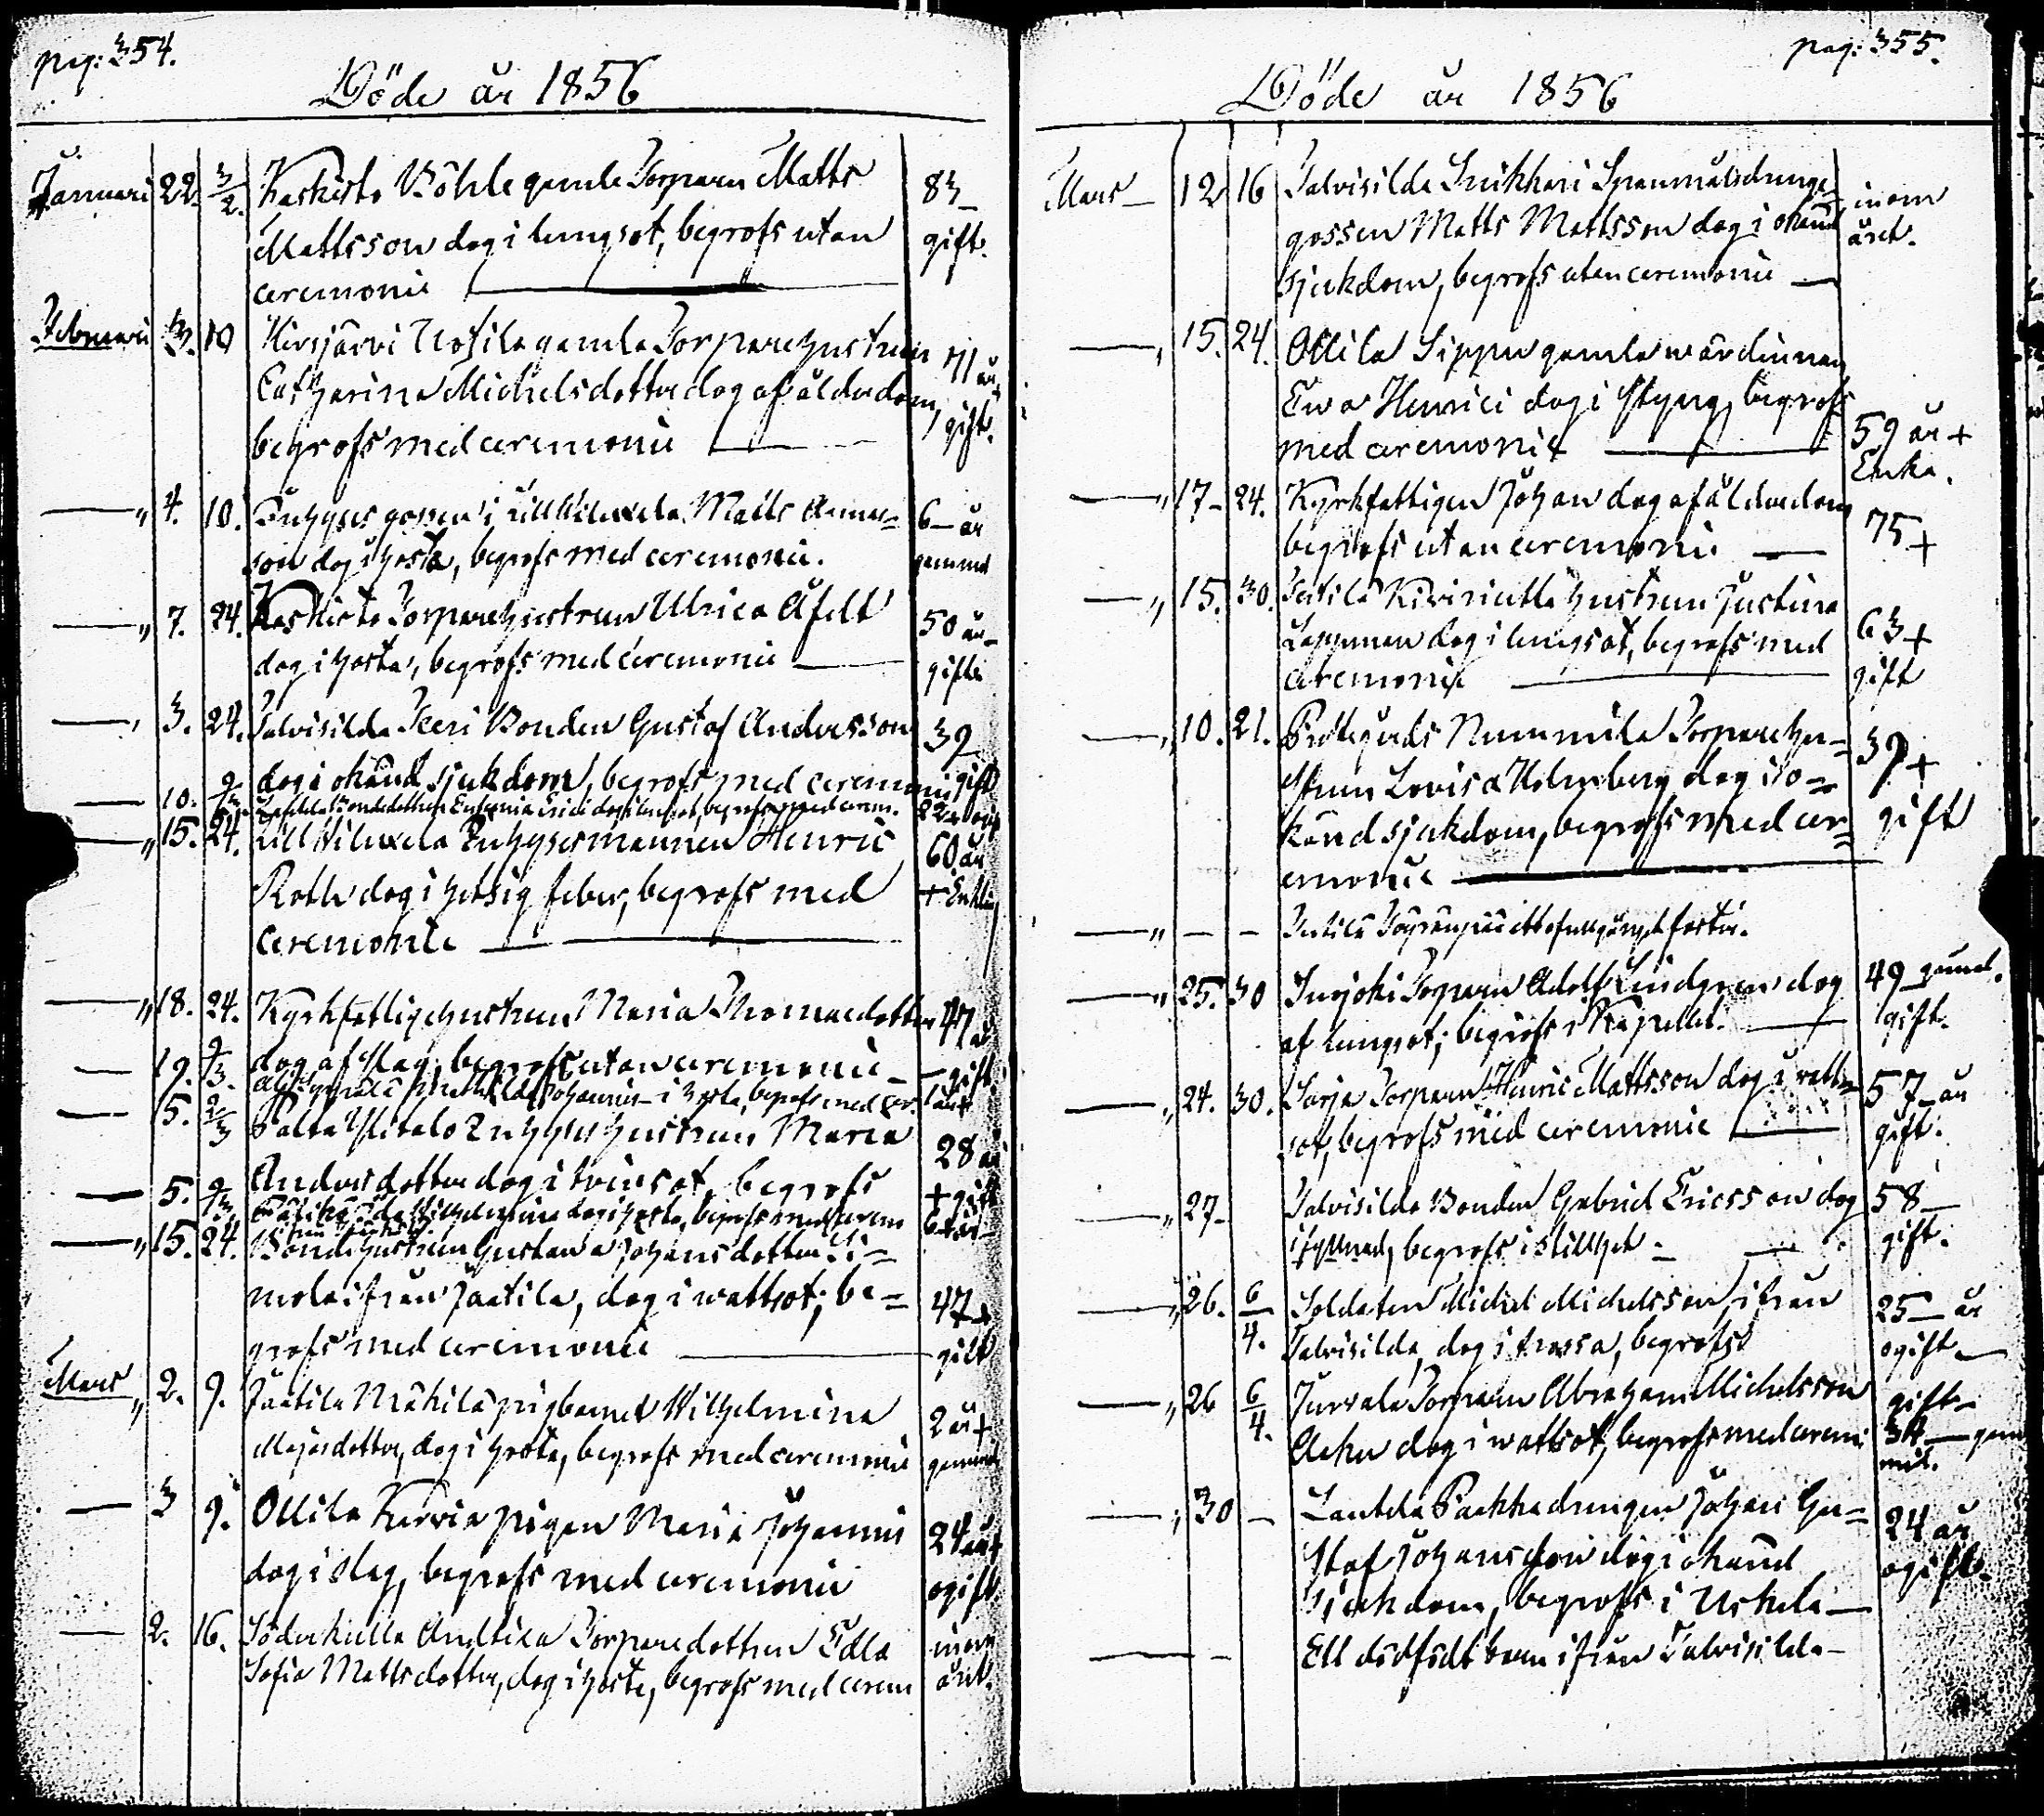 pag: 354.
Döde år 1856
Januari 22. 3/2. Keskisto Böhle gamle Torparen Matts 83
Mattsson dog i lungsot, begrofs utan gift.
ceremonie
Februari 3. 10 Hirsjärvi Uotila gamla Torparehustrun 71 år,
Catharina Michelsdotter dog af ålderdom, gift.
begrofs med ceremonie
" 4. 10. gossen i Matts 6 år
son dog i hosta, begrofs med ceremonie. gammal
" 7. 24. Keskisto Torparehustrun Ulrica Åfelt 50 år
dog i hosta, begrofs med ceremonie gift
3. 24. Talvisilda Bonden Gustaf Andersson 39
dog i okänd sjukdom, begrofs med ceremoni gift
10. 9/3 dog i lungsot, begrofs med cerem. 22
" 15. 24. Henric 60 år
Roth dog i hetsig feber, begrofs med + Enkling
ceremonie
" 18. 24. Kyrkfattighustrun Maria Thomasdotter 47 år
dog af slag, begrofs utan ceremonie gift
19. 9/3. Johannis i hosta, begrofs med cer. 1 år
5. 9/3 Palta Ylitalo Inhyses hustrun Maria 28 år
Andersdotter dog i tvinsot, begrofs + gift
5. 9/3 Ida Wilhelmina dog i hosta, begrofs med cerem 6
" 15. 24. Bondehustrun Gustava Johansdotter
mola ifrån Jaatila, dog i wattsot, be= 47
grofs med ceremonie gift
Mars " 2. 9. Jaatila Mäkilä pigbarnet Wilhelmina 2 år
Majasdotter, dog i hosta, begrofs med ceremonie gammal
3 9. Ollila Kervia pigan Maria Johannis 24 år
dog i slag, begrofs med ceremonie ogift.
2. 16. Söderkulla Anttila Torparedottren Edla inom
Sofia Mattsdotter, dog i hosta, begrofs med cerem året.
pag: 355.
Döde år 1856
Mars 12 16 Talvisilda inom
gossen Matts Mattsson dog i okänd året.
sjukdom, begrofs utan ceremonie
15. 24. Ollila Sippu gamla wärdinnan
Ewa Henrici dog i styng, begrofs
med ceremonie 59 år +
Enka.
" 17 24. Kyrkfattigen Johan dog af ålderdom
begrofs utan ceremonie 75 +
" 15. 30. hustrun Justina
dog i lungsot, begrofs med 63 +
ceremonie gift
" 10. 21. Prestgårds Nummila Torparehu=
strun Lovisa Holmberg dog i o= 39 +
känd sjukdom, begrofs med cer= gift
emonie
" – – ett ofullgånget foster.
" 25. 30 Torparen Adolf Lindgren dog 49 gammal.
af lungsot; begrofs i Kapellet. gift.
" 24. 30. Sorja Torparen Henric Mattsson dog i vatten 57 år
sot, begrofs med ceremonie gift.
" 27 Talvisilda Bonden Gabriel Ericsson dog 58
begrofs i stillhet gift.
" 26. 6/4. Soldaten Michel Michelsson, ifrån 25 år
Talvisilda, dog i frossa, begrofs ogift
" 26 6/4. Jurvala Torparen Abraham Michelsson gift
dog i wattsot, begrofs med ceremoni 34 gam
mal.
" 30 – Lautela drengen Johan Gu= 24 år
staf Johansson dog i okänd ogift
sjukdom, begrofs i Uskela
Ett dödfödt barn ifrån Talvisilda